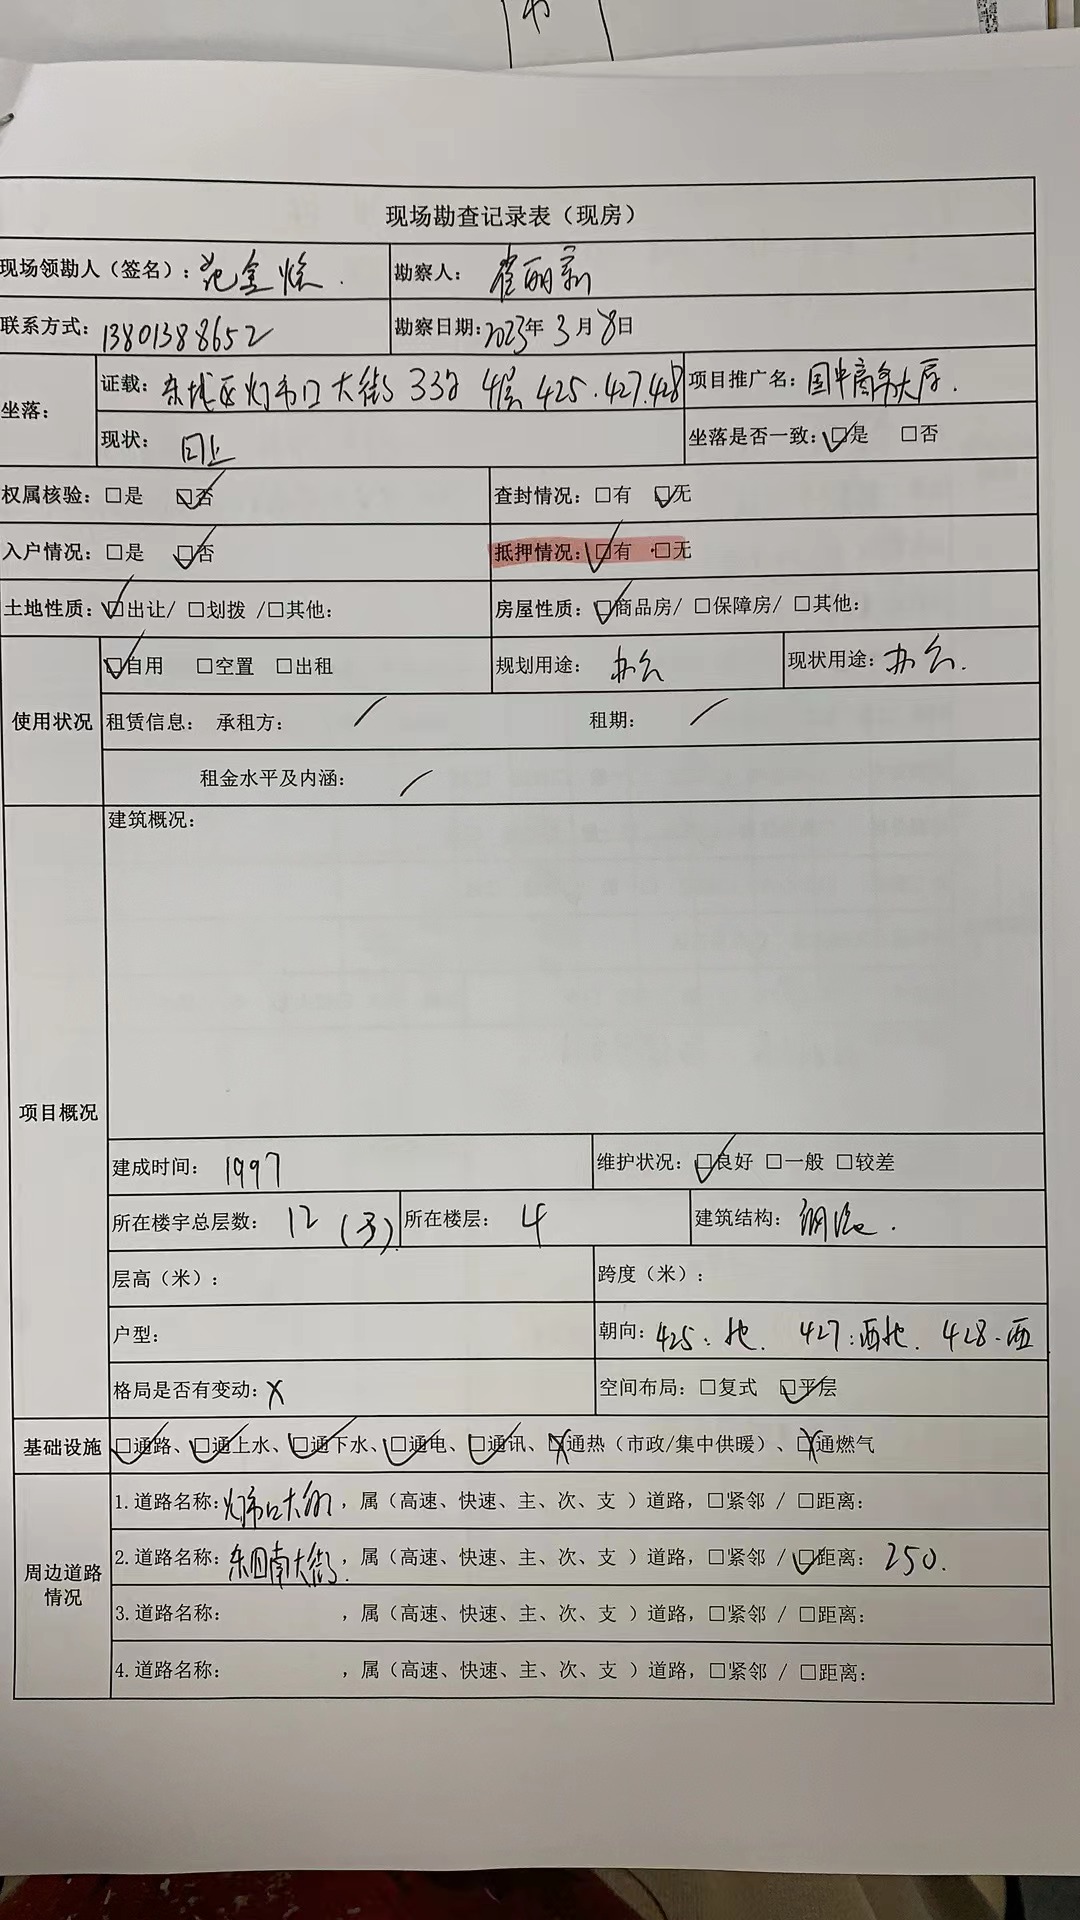 现场勘查记录表（现房）
现场领勘人（签名）：范金 勘察人：崔丽新
联系方式：13801388652 勘察日期：2023年3月8日
坐落：
证载：东城区灯市口大街33号 4层 425.427.428 项目推广名：国中商务大厦.
现状：同上 坐落是否一致：☑是 □否
权属核验：□是 ☑否 查封情况：□有 ☑无
入户情况：□是 ☑否 抵押情况：☑有 □无
土地性质：☑出让/ □划拨 /□其他： 房屋性质：☑商品房/ □保障房/ □其他：
使用状况
☑自用 □空置 □出租 规划用途：办公 现状用途：办公.
租赁信息： 承租方： / 租期： /
租金水平及内涵： /
项目概况
建筑概况：
建成时间：1997 维护状况：☑良好 □一般 □较差
所在楼宇总层数：12 所在楼层：4 建筑结构：钢混.
层高（米）： 跨度（米）：
户型： 朝向：425：北. 427：西北. 428.西
格局是否有变动：X 空间布局：□复式 ☑平层
基础设施 ☑通路、☑通上水、☑通下水、☑通电、☑通讯、☒通热（市政/集中供暖）、☒通燃气
周边道路情况
1.道路名称：灯市口大街，属（高速、快速、主、次、支 ）道路，□紧邻 / □距离：
2.道路名称：东四南大街，属（高速、快速、主、次、支 ）道路，□紧邻 / ☑距离：250.
3.道路名称： ，属（高速、快速、主、次、支 ）道路，□紧邻 / □距离：
4.道路名称： ，属（高速、快速、主、次、支 ）道路，□紧邻 / □距离：